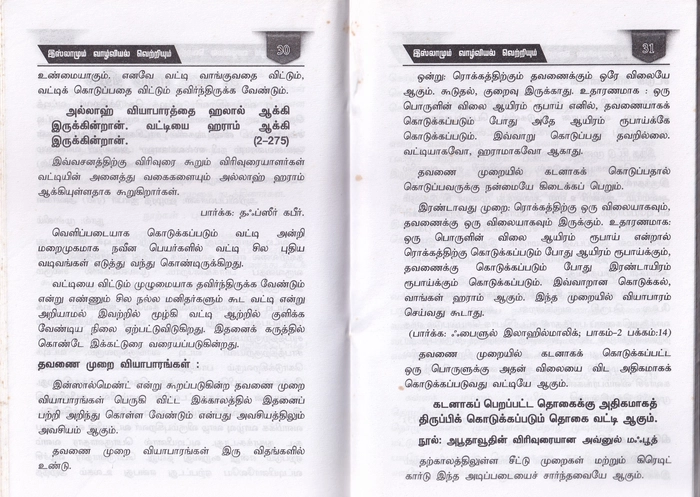 இஸ்லாமும் வாழ்வியல் வெற்றியும்
30
உண்மையாகும். எனவே வட்டி வாங்குவதை விட்டும்,
வட்டிக் கொடுப்பதை விட்டும் தவிர்ந்திருக்க வேண்டும்.
அல்லாஹ் வியாபாரத்தை ஹலால் ஆக்கி
இருக்கின்றான். வட்டியை ஹராம் ஆக்கி
இருக்கின்றான். (2-275)
இவ்வசனத்திற்கு விரிவுரை கூறும் விரிவுரையாளர்கள்
வட்டியின் அனைத்து வகைகளையும் அல்லாஹ் ஹராம்
ஆக்கியுள்ளதாக கூறுகிறார்கள்.
பார்க்க: தஃப்ஸீர் கபீர்.
வெளிப்படையாக கொடுக்கப்படும் வட்டி அன்றி
மறைமுகமாக நவீன பெயர்களில் வட்டி சில புதிய
வடிவங்கள் எடுத்து வந்து கொண்டிருக்கிறது.
வட்டியை விட்டும் முழுமையாக தவிர்ந்திருக்க வேண்டும்
என்று எண்ணும் சில நல்ல மனிதர்களும் கூட வட்டி என்று
அறியாமல் இவற்றில் மூழ்கி வட்டி ஆற்றில் குளிக்க
வேண்டிய நிலை ஏற்பட்டுவிடுகிறது. இதனைக் கருத்தில்
கொண்டே இக்கட்டுரை வரையப்படுகின்றது.
தவணை முறை வியாபாரங்கள் :
இன்ஸால்மெண்ட் என்று கூறப்படுகின்ற தவணை முறை
வியாபாரங்கள் பெருகி விட்ட இக்காலத்தில் இதனைப்
பற்றி அறிந்து கொள்ள வேண்டும் என்பது அவசியத்திலும்
அவசியம் ஆகும்.
தவணை முறை வியாபாரங்கள் இரு விதங்களில்
உண்டு.
இஸ்லாமும் வாழ்வியல் வெற்றியும்
31
ஒன்று: ரொக்கத்திற்கும் தவணைக்கும் ஒரே விலையே
ஆகும். கூடுதல், குறைவு இருக்காது. உதாரணமாக : ஒரு
பொருளின் விலை ஆயிரம் ரூபாய் எனில், தவணையாகக்
கொடுக்கப்படும் போது அதே ஆயிரம் ரூபாய்க்கே
கொடுக்கப்படும். இவ்வாறு கொடுப்பது தவறில்லை.
வட்டியாகவோ, ஹராமாகவோ ஆகாது.
தவணை முறையில் கடனாகக் கொடுப்பதால்
கொடுப்பவருக்கு நன்மையே கிடைக்கப் பெறும்.
இரண்டாவது முறை: ரொக்கத்திற்கு ஒரு விலையாகவும்,
தவணைக்கு ஒரு விலையாகவும் இருக்கும். உதாரணமாக:
ஒரு பொருளின் விலை ஆயிரம் ரூபாய் என்றால்
ரொக்கத்திற்கு கொடுக்கப்படும் போது ஆயிரம் ரூபாய்க்கும்,
தவணைக்கு கொடுக்கப்படும் போது இரண்டாயிரம்
ரூபாய்க்கும் கொடுக்கப்படும். இவ்வாறான கொடுக்கல்,
வாங்கள் ஹராம் ஆகும். இந்த முறையில் வியாபாரம்
செய்வது கூடாது.
(பார்க்க: ஃபைளுல் இலாஹில்மாலிக்; பாகம்-2 பக்கம்:14)
தவணை முறையில் கடனாகக் கொடுக்கப்பட்ட
ஒரு பொருளுக்கு அதன் விலையை விட அதிகமாகக்
கொடுக்கப்படுவது வட்டியே ஆகும்.
கடனாகப் பெறப்பட்ட தொகைக்கு அதிகமாகத்
திருப்பிக் கொடுக்கப்படும் தொகை வட்டி ஆகும்.
நூல்: அபூதாவூதின் விரிவுரையான அவ்னுல் மஃபூத்
தற்காலத்திலுள்ள சீட்டு முறைகள் மற்றும் கிரெடிட்
கார்டு இந்த அடிப்படையைச் சார்ந்தவையே ஆகும்.